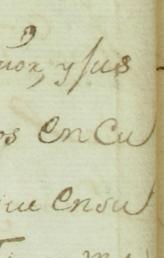 uor, y sus
os en Cu
ue en su